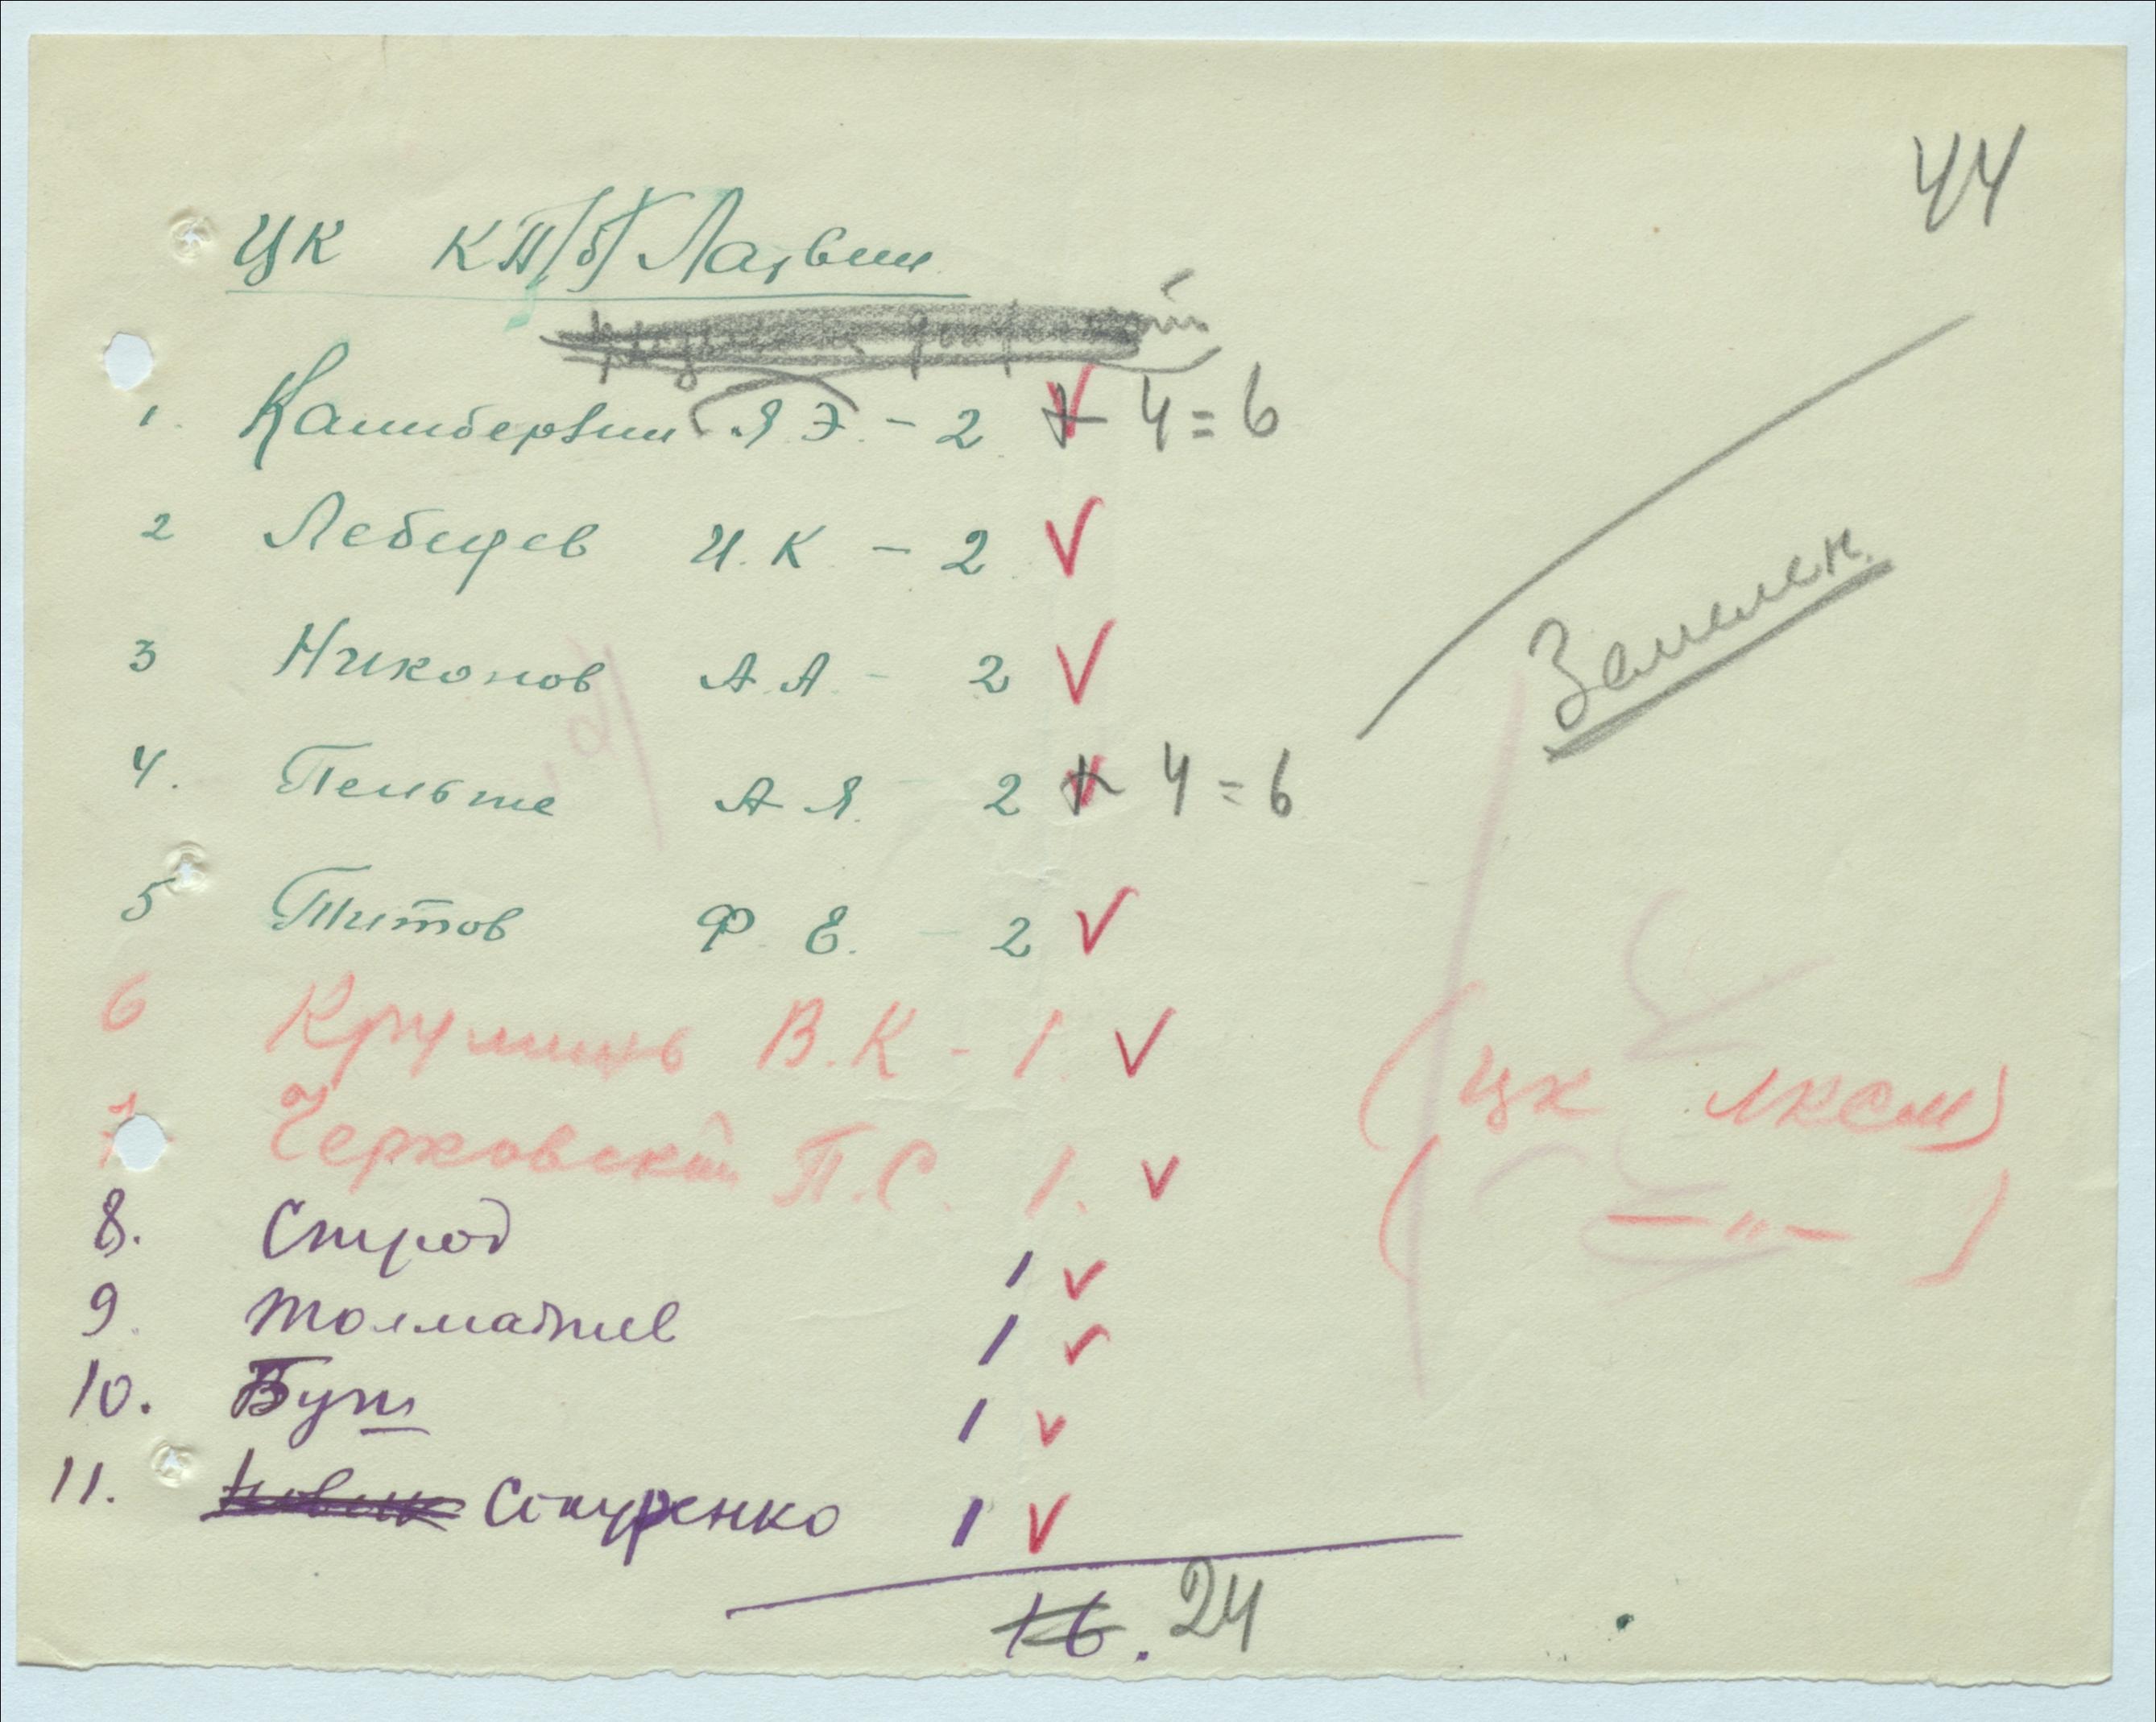 44
ЦК КП/б/ Латвии
1. Калнберзин Я.Э. - 2 + 4 = 6
2 Лебедев И.К. - 2
3 Никонов А.А. - 2
4. Пельше А.Я. - 2 + 4 = 6
5 Титов Ф.Е. - 2
6 Круминь В.К - 1. (ЦК ЛКСМ)
7 Черковский П.С. 1. ( —"— )
8. Струод 1
9. Толмачев 1
10. Буш 1
11. Новик Стуренко 1
16. 24